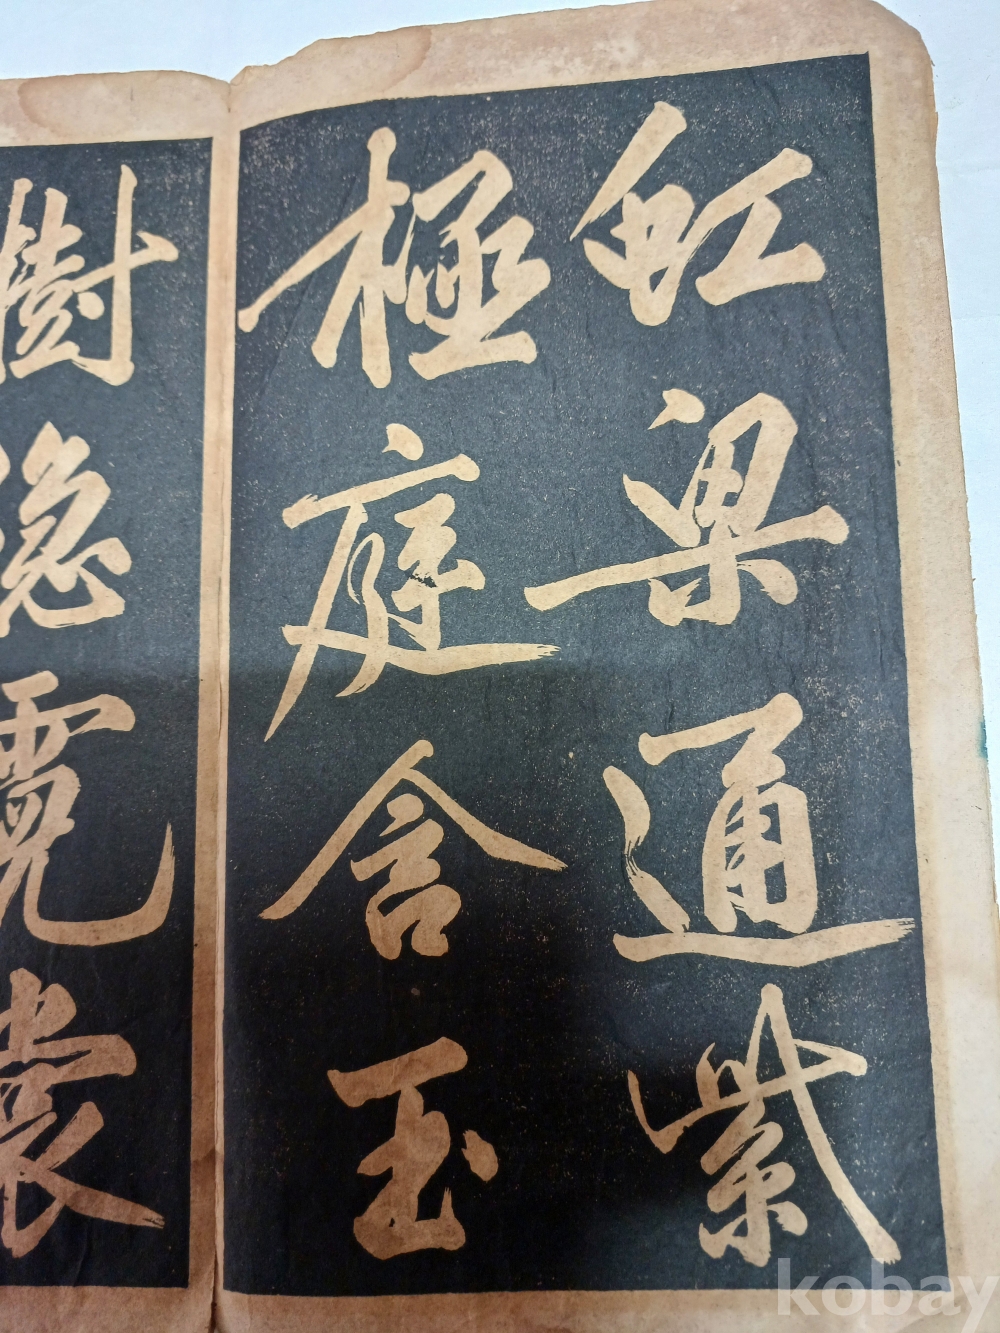 虹梁通紫
極庭含玉
樹隱霓裳
kobay